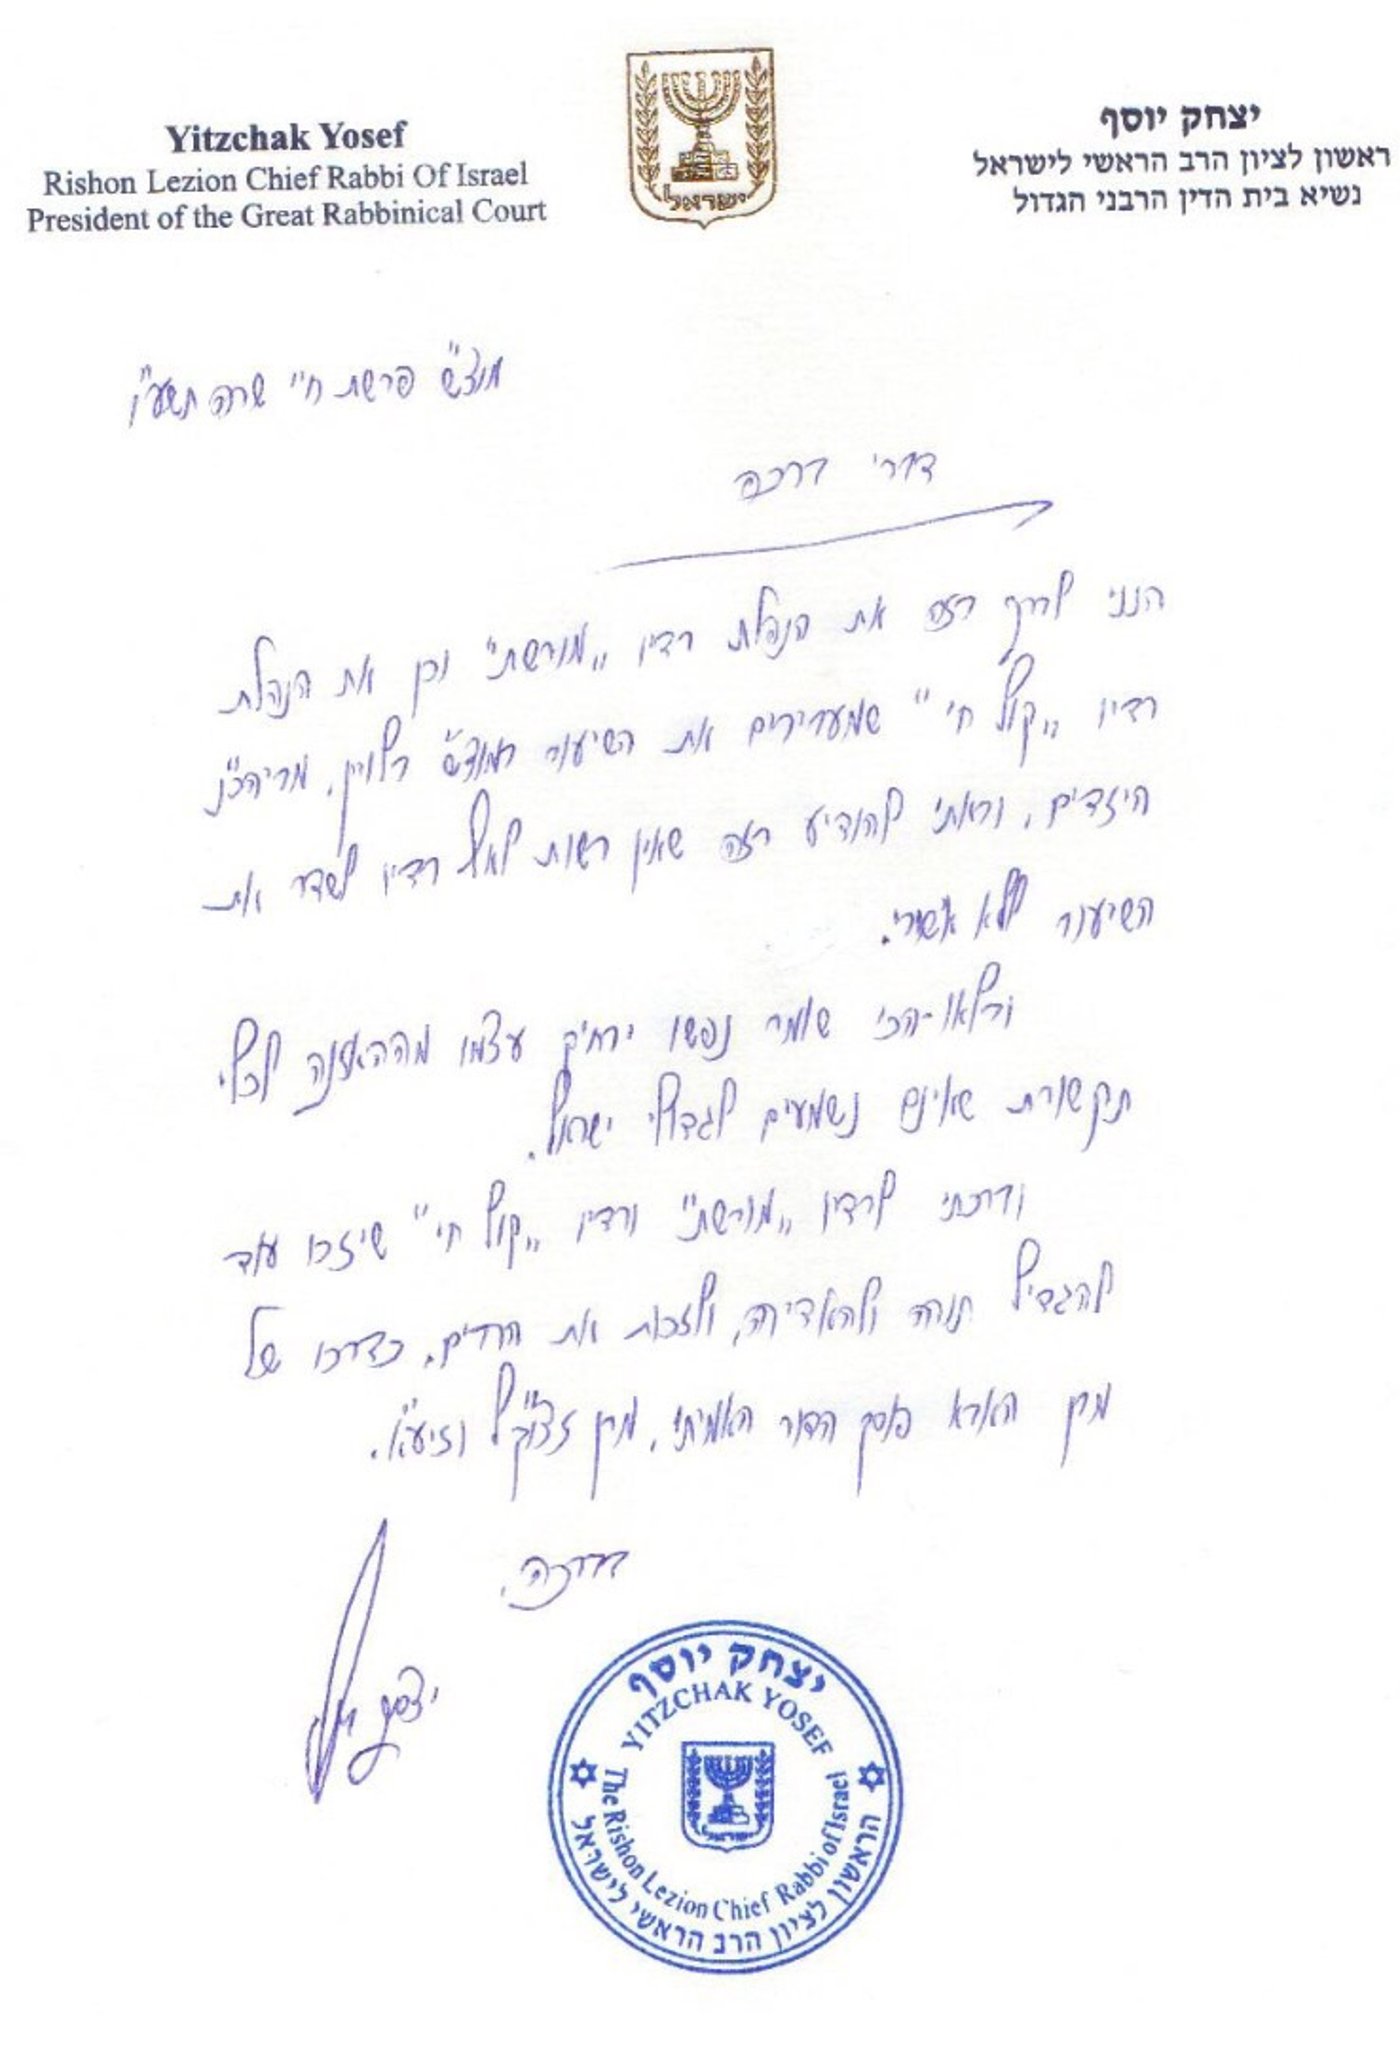 Yitzchak Yosef
Rishon Lezion Chief Rabbi Of Israel
President of the Great Rabbinical Court
ישראל
יצחק יוסף
ראשון לציון הרב הראשי לישראל
נשיא בית הדין הרבני הגדול
מוצ"ש פרשת חיי שרה תשע"ו
דברי ברכה
הנני לברך בזה את הנהלת רדיו "מורשת" וכן את הנהלת
רדיו "קול חי" שמעבירים את השיעור במוצ"ש בלווין, מביהכ"נ
היזדים, וראתי להודיע בזה שאין רשות לאף רדיו לשדר את
השיעור ללא אישורי.
ובלאו-הכי שומר נפשו ירחיק עצמו מההאזנה לכלי
תקשורת שאינם נשמעים לגדולי ישראל.
וברכתי לרדיו "מורשת" ורדיו "קול חי" שיזכו עוד
להגדיל תורה ולהאדירה, ולזכות את הרבים, כדרכו של
מרן האבא פוסק הדור האמיתי, מרן זצוק"ל וזיע"א.
בברכה,
יצחק יוסף
יצחק יוסף
YITZCHAK YOSEF
The Rishon Lezion Chief Rabbi of Israel
הראשון לציון הרב הראשי לישראל